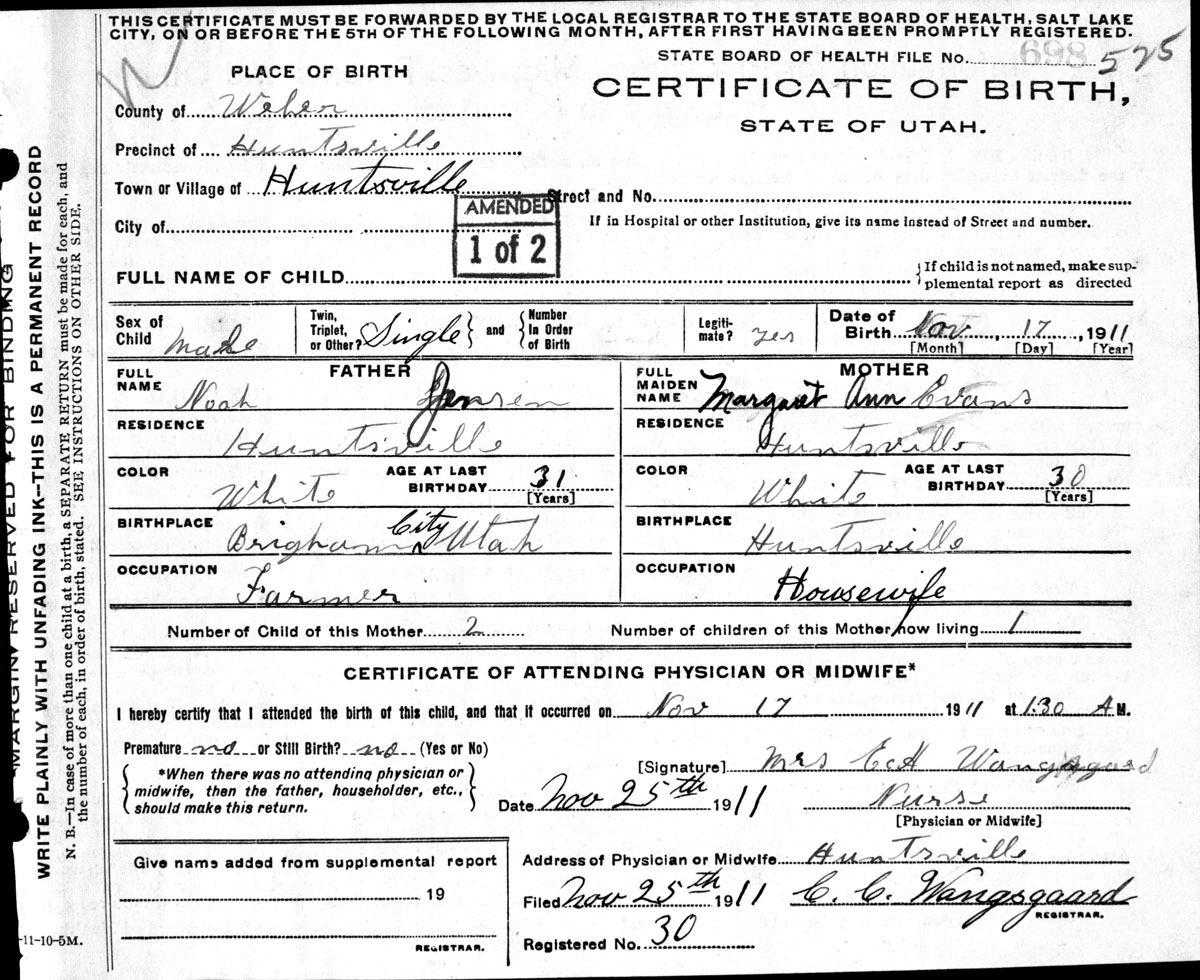 THIS CERTIFICATE MUST BE FORWARDED BY THE LOCAL REGISTRAR TO THE STATE BOARD OF HEALTH, SALT LAKE
CITY, ON OR BEFORE THE 5TH OF THE FOLLOWING MONTH, AFTER FIRST HAVING BEEN PROMPTLY REGISTERED.
STATE BOARD OF HEALTH FILE No. 698 525
PLACE OF BIRTH
CERTIFICATE OF BIRTH,
STATE OF UTAH.
County of Weber
Precinct of Huntsville
Town or Village of Huntsville Street and No.
AMENDED
1 of 2
City of
If in Hospital or other Institution, give its name instead of Street and number.
FULL NAME OF CHILD
{If child is not named, make sup-
plemental report as directed
Sex of Child Male
Twin, Triplet, or Other? Single} and {Number In Order of Birth
Legiti-
mate? yes
Date of Birth Nov, 17, 1911
[Month] [Day] [Year]
FATHER
FULL NAME Noah Jensen
RESIDENCE
Huntsville
COLOR White
AGE AT LAST BIRTHDAY 31
[Years]
BIRTHPLACE
Brigham City Utah
OCCUPATION
Farmer
MOTHER
FULL MAIDEN NAME Margaret Ann Evans
RESIDENCE
Huntsville
COLOR White
AGE AT LAST BIRTHDAY 30
[Years]
BIRTHPLACE
Huntsville
OCCUPATION
Housewife
Number of Child of this Mother 2 Number of children of this Mother now living 1
CERTIFICATE OF ATTENDING PHYSICIAN OR MIDWIFE*
I hereby certify that I attended the birth of this child, and that it occurred on Nov 17 1911 at 1:30 A M.
Premature no or Still Birth? no (Yes or No)
{*When there was no attending physician or
midwife, then the father, householder, etc.,
should make this return.}
[Signature] Mrs E A Wangsgaard
Date Nov 25th 1911 Nurse
[Physician or Midwife]
Give name added from supplemental report
19
REGISTRAR.
Address of Physician or Midwife Huntsville
Filed Nov 25th 1911 C. C. Wangsgaard
REGISTRAR.
Registered No. 30
-11-10-5M.
MARGIN RESERVED FOR BINDING
WRITE PLAINLY WITH UNFADING INK--THIS IS A PERMANENT RECORD
N. B.—In case of more than one child at a birth, a SEPARATE RETURN must be made for each, and
the number of each, in order of birth, stated. SEE INSTRUCTIONS ON OTHER SIDE.